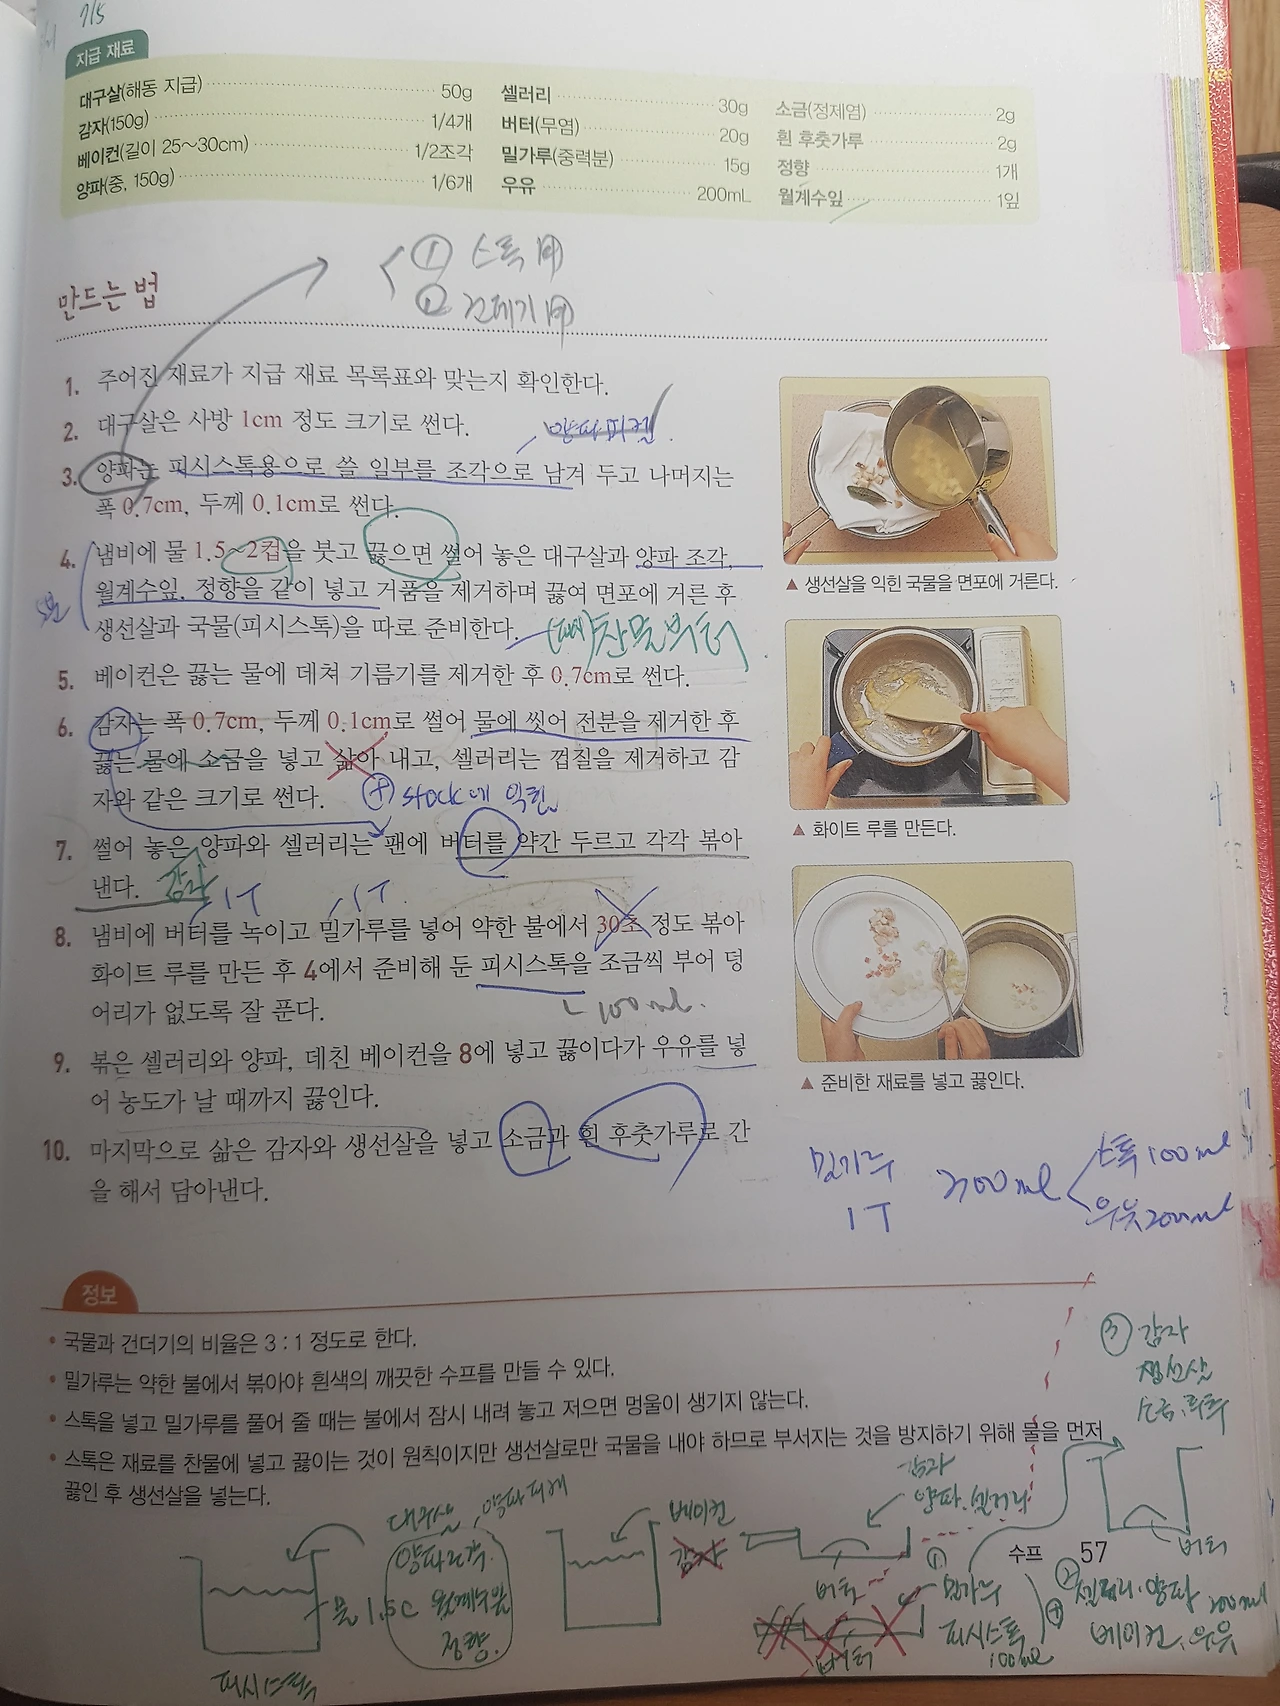 7/5
지급 재료
대구살(해동 지급) 50g
감자(150g) 1/4개
베이컨(길이 25~30cm) 1/2조각
양파(중, 150g) 1/6개
셀러리 30g
버터(무염) 20g
밀가루(중력분) 15g
우유 200mL
소금(정제염) 2g
흰 후춧가루 2g
정향 1개
월계수잎 1잎
① 스톡用
② 건데기用
만드는 법
1. 주어진 재료가 지급 재료 목록표와 맞는지 확인한다.
2. 대구살은 사방 1cm 정도 크기로 썬다.
3. 양파는 피시스톡용으로 쓸 일부를 조각으로 남겨 두고 나머지는
폭 0.7cm, 두께 0.1cm로 썬다.
4. 냄비에 물 1.5~2컵을 붓고 끓으면 썰어 놓은 대구살과 양파 조각,
월계수잎, 정향을 같이 넣고 거품을 제거하며 끓여 면포에 거른 후
생선살과 국물(피시스톡)을 따로 준비한다.
찬물부터
5. 베이컨은 끓는 물에 데쳐 기름기를 제거한 후 0.7cm로 썬다.
6. 감자는 폭 0.7cm, 두께 0.1cm로 썰어 물에 씻어 전분을 제거한 후
끓는 물에 소금을 넣고 삶아 내고, 셀러리는 껍질을 제거하고 감
자와 같은 크기로 썬다.
stock에 익힘
7. 썰어 놓은 양파와 셀러리는 팬에 버터를 약간 두르고 각각 볶아
낸다.
감자
1T
1T
8. 냄비에 버터를 녹이고 밀가루를 넣어 약한 불에서 30초 정도 볶아
화이트 루를 만든 후 4에서 준비해 둔 피시스톡을 조금씩 부어 덩
어리가 없도록 잘 푼다.
100ml.
9. 볶은 셀러리와 양파, 데친 베이컨을 8에 넣고 끓이다가 우유를 넣
어 농도가 날 때까지 끓인다.
10. 마지막으로 삶은 감자와 생선살을 넣고 소금과 흰 후춧가루로 간
을 해서 담아낸다.
▲ 생선살을 익힌 국물을 면포에 거른다.
▲ 화이트 루를 만든다.
▲ 준비한 재료를 넣고 끓인다.
밀가루
1T
300ml
스톡 100ml
우유 200ml
정보
• 국물과 건더기의 비율은 3 : 1 정도로 한다.
• 밀가루는 약한 불에서 볶아야 흰색의 깨끗한 수프를 만들 수 있다.
• 스톡을 넣고 밀가루를 풀어 줄 때는 불에서 잠시 내려 놓고 저으면 멍울이 생기지 않는다.
• 스톡은 재료를 찬물에 넣고 끓이는 것이 원칙이지만 생선살로만 국물을 내야 하므로 부서지는 것을 방지하기 위해 물을 먼저
끓인 후 생선살을 넣는다.
③ 감자
생선살
소금, 후추
대구살
양파조각
월계수잎
정향.
물 1.5C
피시스톡
베이컨
감자
감자
양파. 셀러리
버터
버터
① 밀가루
피시스톡
100ml
버터
② 셀러리. 양파
베이컨. 우유
200ml
수프 57